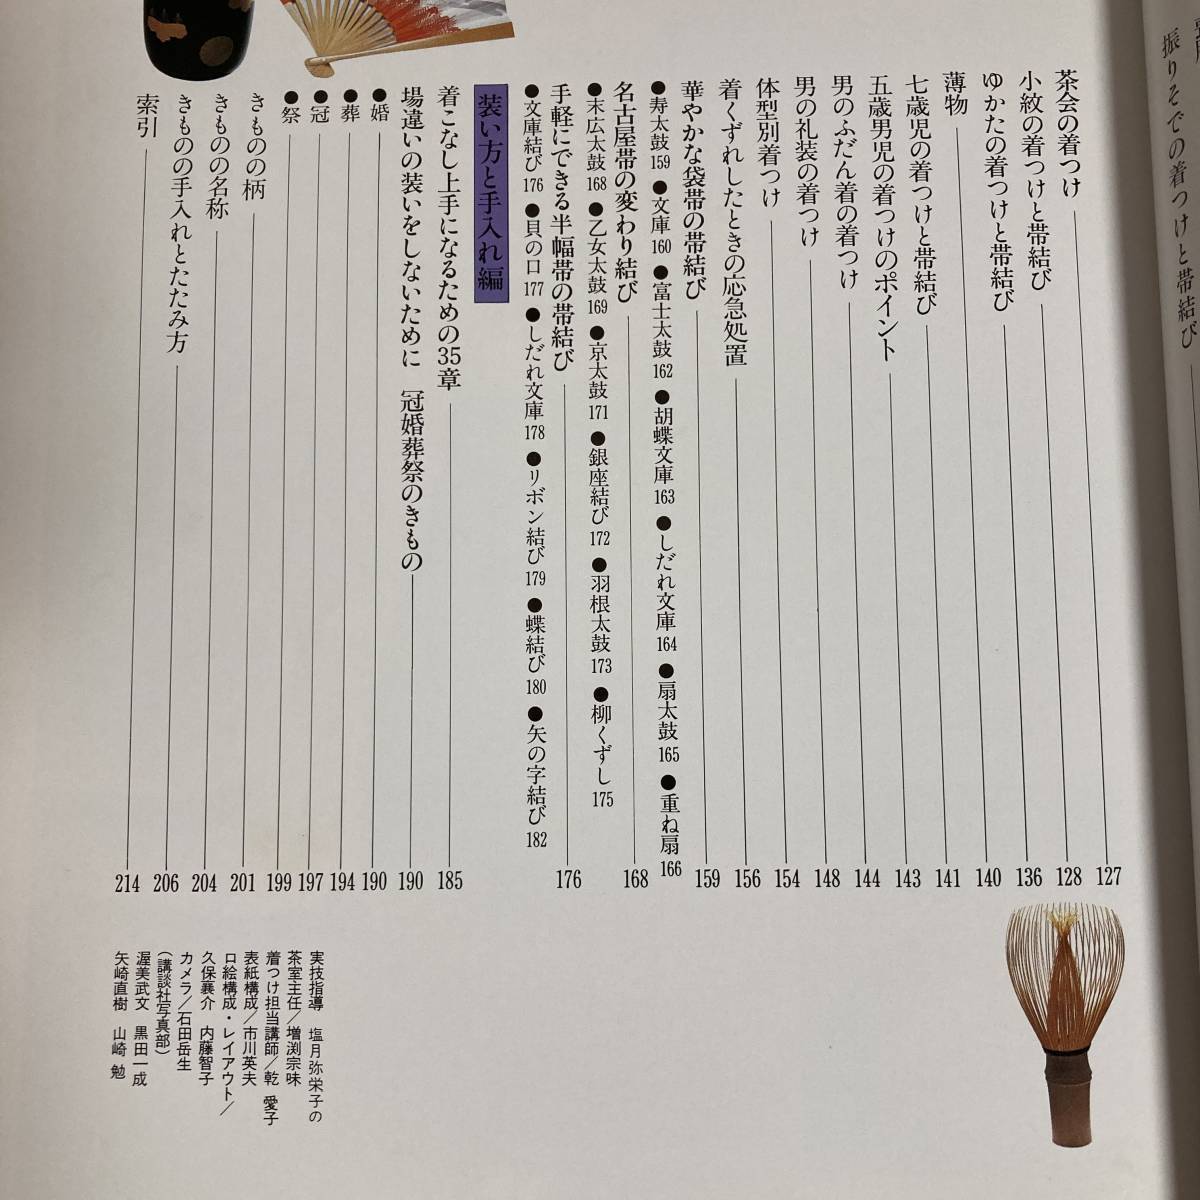 振りそでの着つけと帯結び
茶会の着つけ 127
小紋の着つけと帯結び 128
ゆかたの着つけと帯結び 136
薄物 140
七歳児の着つけと帯結び 141
五歳男児の着つけのポイント 143
男のふだん着の着つけ 144
男の礼装の着つけ 148
体型別着つけ 154
着くずれしたときの応急処置 156
華やかな袋帯の帯結び 159
●寿太鼓159 ●文庫160 ●富士太鼓162 ●胡蝶文庫163 ●しだれ文庫164 ●扇太鼓165 ●重ね扇166
名古屋帯の変わり結び 168
●末広太鼓168 ●乙女太鼓169 ●京太鼓171 ●銀座結び172 ●羽根太鼓173 ●柳くずし175
手軽にできる半幅帯の帯結び 176
●文庫結び176 ●貝の口177 ●しだれ文庫178 ●リボン結び179 ●蝶結び180 ●矢の字結び182
装い方と手入れ編
着こなし上手になるための35章 185
場違いの装いをしないために 冠婚葬祭のきもの 190
●婚 190
●葬 194
●冠 197
●祭 199
きものの柄 201
きものの名称 204
きものの手入れとたたみ方 206
索引 214
実技指導 塩月弥栄子の
茶室主任/増渕宗味
着つけ担当講師/乾 愛子
表紙構成/市川英夫
口絵構成・レイアウト/
久保襄介 内藤智子
カメラ/石田岳生
(講談社写真部)
渥美武文 黒田一成
矢崎直樹 山崎 勉